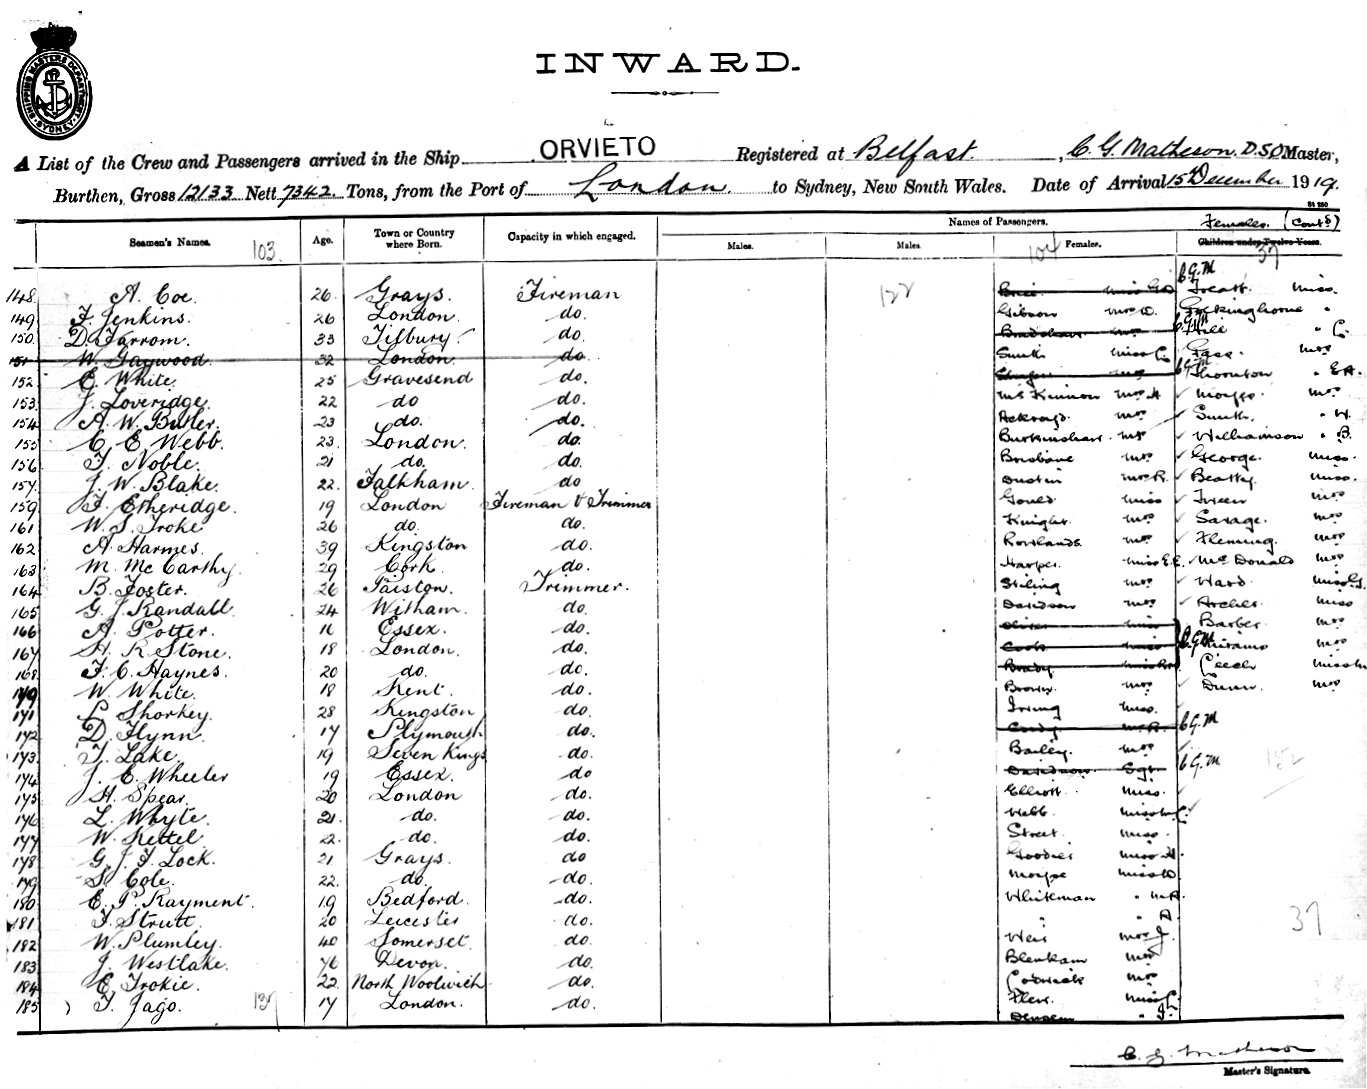 SHIPPING MASTERS DEPARTMENT SYDNEY
INWARD.
A List of the Crew and Passengers arrived in the Ship ORVIETO Registered at Belfast. , C. G. Matheson. D.S.O Master,
Burthen, Gross 12133 Nett 7342 Tons, from the Port of London. to Sydney, New South Wales. Date of Arrival 15th December 1919.
Seamen's Names. 103. Age. Town or Country where Born. Capacity in which engaged. Names of Passengers.
Males. Males. 104 Females. Females. (contd)
Children under Twelve Years. 37
122
148 A. Coe. 26 Grays. Fireman Treatt. miss.
149 F. Jenkins. 26 London. do. Gibson mrs D.
150 D. Farrom. 33 Tilbury. do. Bradshaw mrs C.G.M Hill " C.
151 W. Gaywood. 32 London. do. Smith miss C. mrs
152 E. White. 25 Gravesend do. C.G.M Thornton " E.A.
153 J. Loveridge. 22 do do. McKinnon mrs H mrs
154 A. W. Butler. 23 do. do. Ackroyd. mrs Smith. " W.
155 C. E. Webb. 23. London. do. Burkinshaw. mrs Williamson " B.
156 F. Noble. 21 do. do. Brisbane mrs George. miss.
157 J. W. Blake. 22. Falkham. do Dustin mrs R. Beatty. miss.
159 F. Etheridge. 19 London Fireman & Trimmer Gould miss mrs
161 W. S. Troke 26 do. do. Knight. mrs Savage. mrs
162 A. Harmes. 39 Kingston do. Rowlands mrs Fleming. mrs
163 M. McCarthy. 29 Cork. do. Harper. miss E.E. McDonald mrs
164 B. Foster. 26 Paiston. Trimmer. Stirling mrs Ward. miss G.
165 G. J. Randall. 24 Witham. do. Davidson mrs Archer. miss
166 A. Potter. 16 Essex. do. Oliver miss Barber mrs
167 H. R. Stone. 18 London. do. Cook miss C.G.M mrs
168 F. C. Haynes. 20 do. do. Brady
170 W. White. 18 Kent. do. Brown mrs Dunn. mrs
171 L. Shorkey. 28 Kingston do. Irving miss.
172 D. Flynn. 17 Plymouth do. C.G.M
173 F. Lake. 19 Seven Kings do. Bailey. mrs
174 J. E. Wheeler 19 Essex. do Davidson C.G.M 152
175 H. Spear. 20 London do. Elliott. miss.
176 L. Whyte. 21 do. do. Webb
177 W. Kettel 22. do. do. Street. miss.
178 G. J. F. Lock. 21 Grays. do miss H.
179 S. Cole. 22. do do. miss D.
180 E. P. Rayment. 19 Bedford. do. Whiteman
181 F. Strutt. 20 Leicester do. " " A. 37
182 W. Plumley. 40 Somerset. do. Weir mrs J.
183 J. Westlake. 46 Devon. do. Blenham mrs
184 E. Trokie. 22 North Woolwich do. mrs
185 F. Jago. 137 17 London. do. miss C.
C. G. Matheson
Master's Signature.